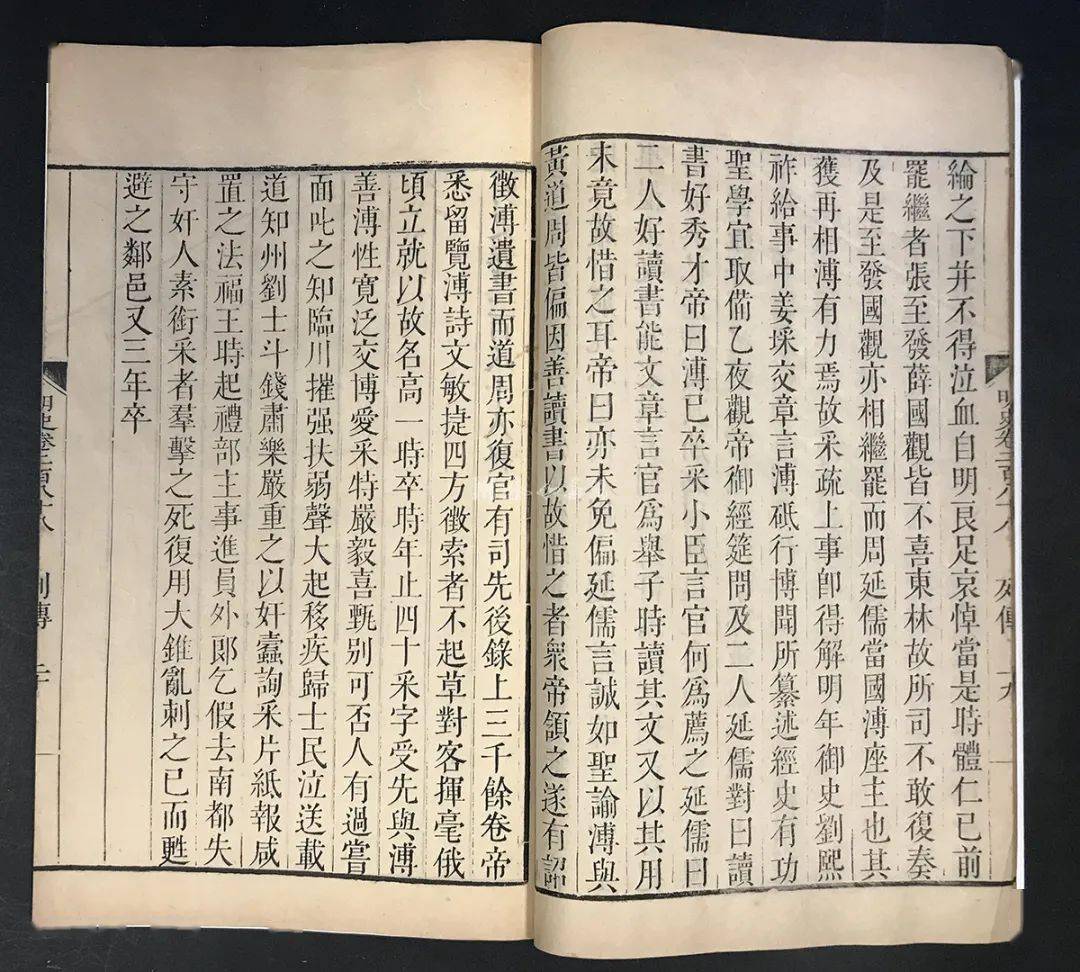 綸之下并不得泣血自明良足哀悼當是時體仁已前
罷繼者張至發薛國觀皆不喜東林故所司不敢復奏
及是至發國觀亦相繼罷而周延儒當國溥座主也其
獲再相溥有力焉故采疏上事卽得解明年御史劉熙
祚給事中姜埰交章言溥砥行博聞所纂述經史有功
聖學宜取備乙夜觀帝御經筵問及二人延儒對曰讀
書好秀才帝曰溥已卒采小臣言官何爲薦之延儒曰
二人好讀書能文章言官爲舉子時讀其文又以其用
未竟故惜之耳帝曰亦未免偏延儒言誠如聖諭溥與
黃道周皆偏因善讀書以故惜之者衆帝頷之遂有詔
明史卷二百八十八 列傳 二十
徵溥遺書而道周亦復官有司先後錄上三千餘卷帝
悉留覽溥詩文敏捷四方徵索者不起草對客揮毫俄
頃立就以故名高一時卒時年止四十采字受先與溥
善溥性寬泛交博愛采特嚴毅喜甄別可否人有過嘗
面叱之知臨川摧强扶弱聲大起移疾歸士民泣送載
道知州劉士斗錢肅樂嚴重之以奸蠹詢采片紙報咸
置之法福王時起禮部主事進員外郎乞假去南都失
守奸人素銜采者羣擊之死復用大錐亂刺之已而甦
避之鄰邑又三年卒